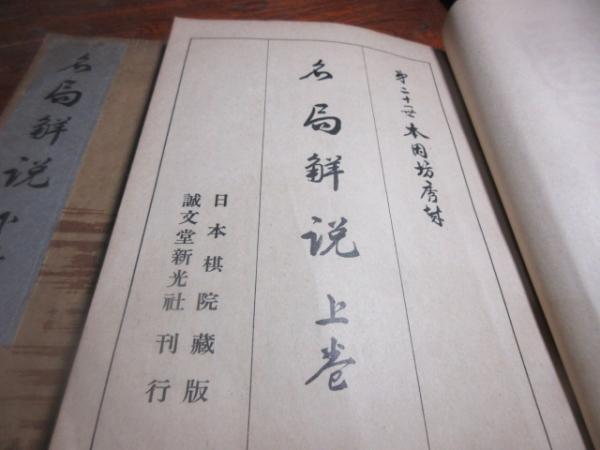 第二十一世本因坊秀哉
名局解説 上巻
日本棋院藏版
誠文堂新光社刊行
名局解説 下